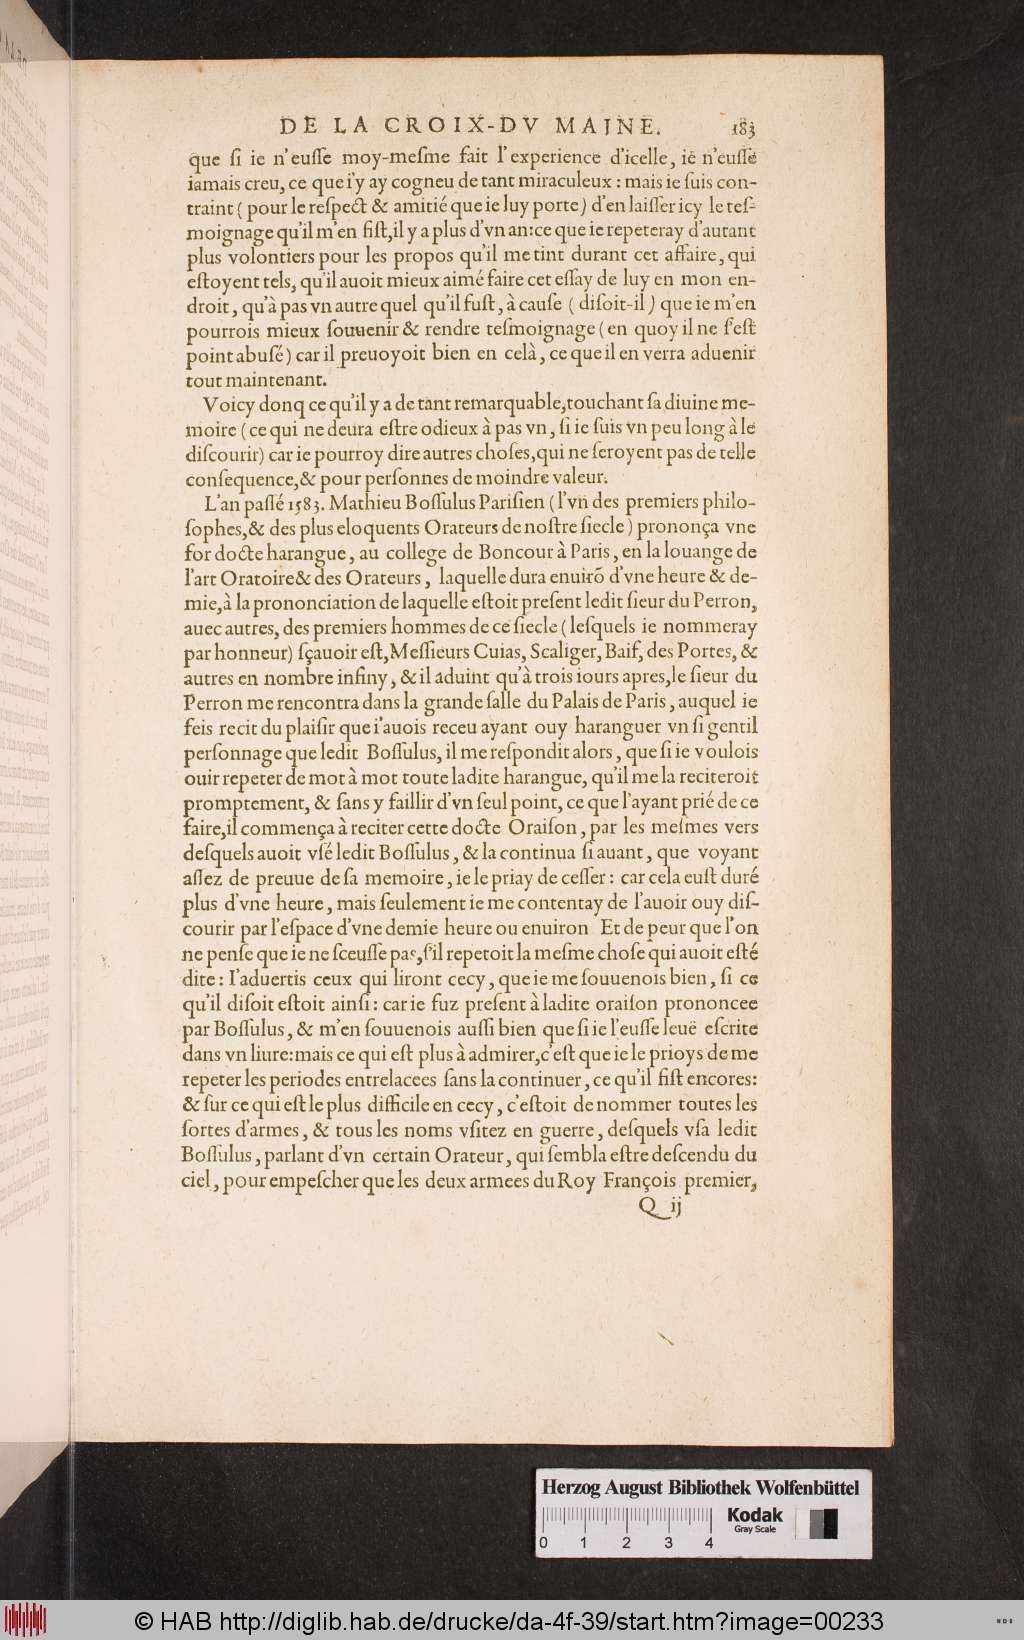 DE LA CROIX-DV MAINE. 183
que ſi ie n'euſſe moy-meſme fait l'experience d'icelle, ie n'euſſe
iamais creu, ce que i'y ay cogneu de tant miraculeux : mais ie ſuis con-
traint ( pour le reſpect & amitié que ie luy porte) d'en laiſſer icy le teſ-
moignage qu'il m'en fiſt, il y a plus d'vn an:ce que ie repeteray d'autant
plus volontiers pour les propos qu'il me tint durant cet affaire, qui
eſtoyent tels, qu'il auoit mieux aimé faire cet eſſay de luy en mon en-
droit, qu'à pas vn autre quel qu'il fuſt, à cauſe ( diſoit-il ) que ie m'en
pourrois mieux ſouuenir & rendre teſmoignage ( en quoy il ne s'eſt
point abuſé ) car il preuoyoit bien en celà, ce que il en verra aduenir
tout maintenant.
Voicy donq ce qu'il y a de tant remarquable, touchant ſa diuine me-
moire ( ce qui ne deura eſtre odieux à pas vn, ſi ie ſuis vn peu long à le
diſcourir) car ie pourroy dire autres choſes, qui ne ſeroyent pas de telle
conſequence, & pour perſonnes de moindre valeur.
L'an paſſé 1583. Mathieu Boſſulus Pariſien ( l'vn des premiers philo-
ſophes, & des plus eloquents Orateurs de noſtre ſiecle ) prononça vne
for docte harangue, au college de Boncour à Paris, en la louange de
l'art Oratoire & des Orateurs, laquelle dura enuirõ d'vne heure & de-
mie, à la prononciation de laquelle eſtoit preſent ledit ſieur du Perron,
auec autres, des premiers hommes de ce ſiecle ( leſquels ie nommeray
par honneur) ſçauoir eſt, Meſſieurs Cuias, Scaliger, Baif, des Portes, &
autres en nombre infiny, & il aduint qu'à trois iours apres, le ſieur du
Perron me rencontra dans la grande ſalle du Palais de Paris, auquel ie
feis recit du plaiſir que i'auois receu ayant ouy haranguer vn ſi gentil
perſonnage que ledit Boſſulus, il me reſpondit alors, que ſi ie voulois
ouir repeter de mot à mot toute ladite harangue, qu'il me la reciteroit
promptement, & ſans y faillir d'vn ſeul point, ce que l'ayant prié de ce
faire, il commença à reciter cette docte Oraiſon, par les meſmes vers
deſquels auoit vſé ledit Boſſulus, & la continua ſi auant, que voyant
aſſez de preuue de ſa memoire, ie le priay de ceſſer : car cela euſt duré
plus d'vne heure, mais ſeulement ie me contentay de l'auoir ouy diſ-
courir par l'eſpace d'vne demie heure ou enuiron Et de peur que l'on
ne penſe que ie ne ſceuſſe pas, s'il repetoit la meſme choſe qui auoit eſté
dite : I'aduertis ceux qui liront cecy, que ie me ſouuenois bien, ſi ce
qu'il diſoit eſtoit ainſi : car ie fuz preſent à ladite oraiſon prononcee
par Boſſulus, & m'en ſouuenois auſſi bien que ſi ie l'euſſe leuë eſcrite
dans vn liure:mais ce qui eſt plus à admirer, c'eſt que ie le prioys de me
repeter les periodes entrelacees ſans la continuer, ce qu'il fiſt encores:
& ſur ce qui eſt le plus difficile en cecy, c'eſtoit de nommer toutes les
ſortes d'armes, & tous les noms vſitez en guerre, deſquels vſa ledit
Boſſulus, parlant d'vn certain Orateur, qui ſembla eſtre deſcendu du
ciel, pour empeſcher que les deux armees du Roy François premier,
Q ij
Herzog August Bibliothek Wolfenbüttel
Kodak
Gray Scale
0 1 2 3 4
© HAB http://diglib.hab.de/drucke/da-4f-39/start.htm?image=00233